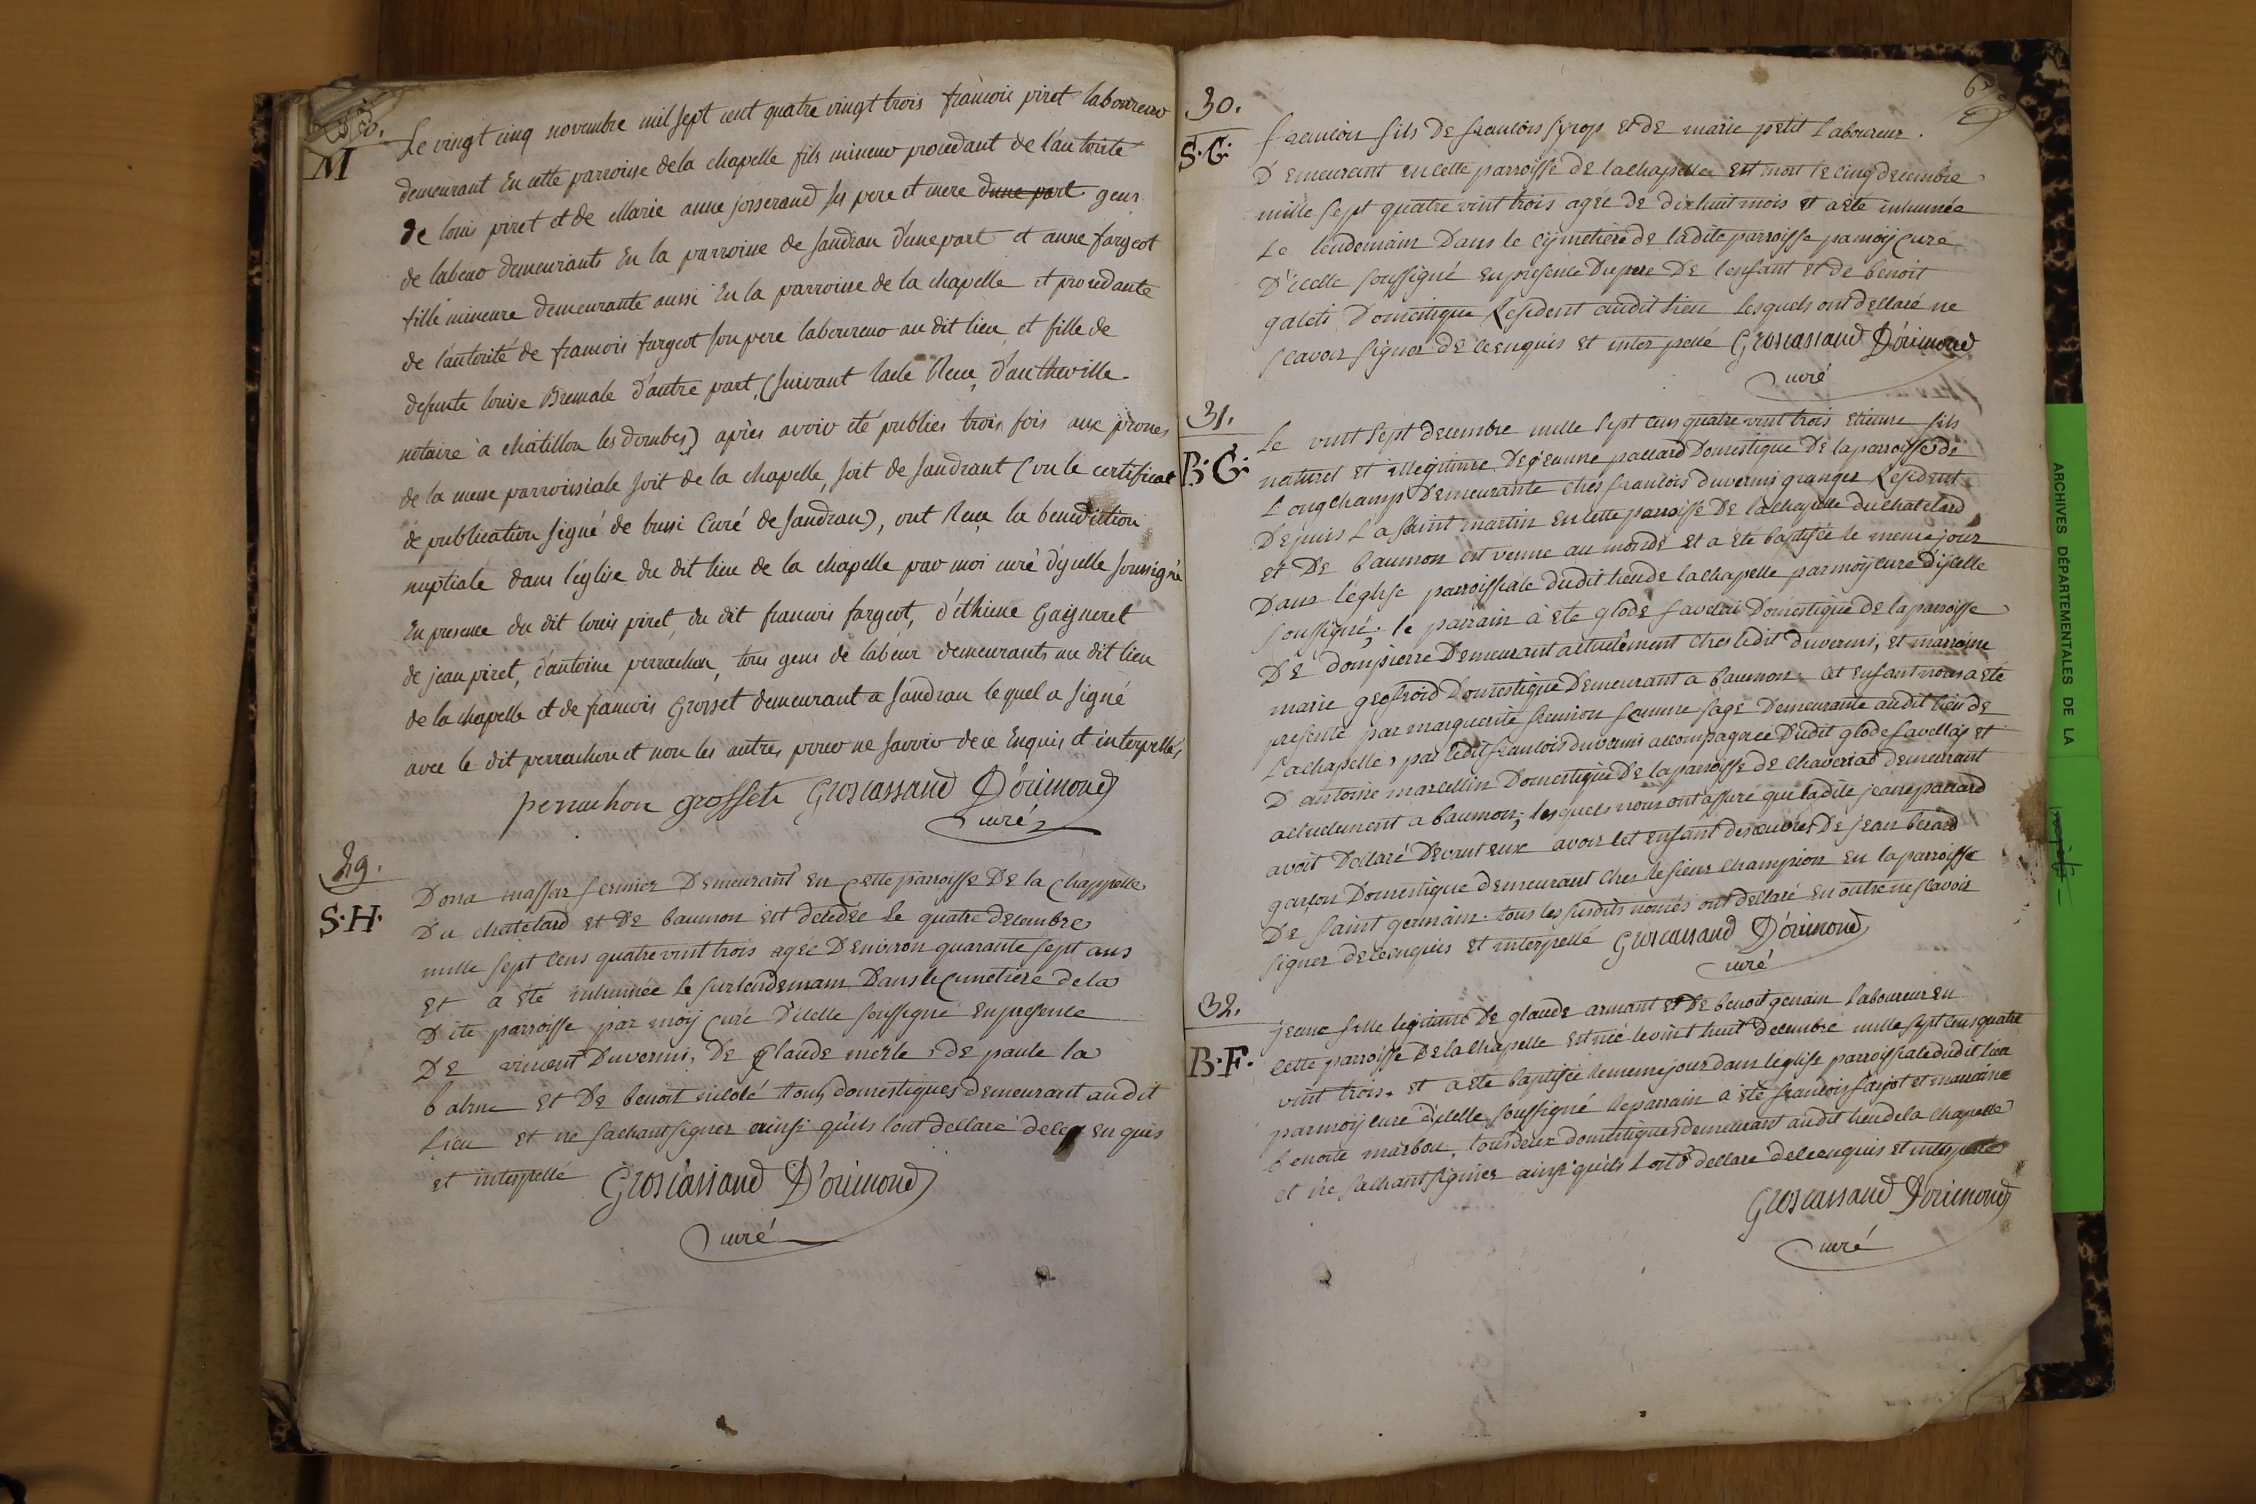 28.
M
Le vingt cinq novembre mil sept cent quatre vingt trois francois piret laboureur
demeurant En cette parroisse de la chapelle fils mineur procedant de l'autorité
de louis piret et de Marie anne josserand ses pere et mere d'une part gens
de labeur demeurants En la parroisse de sandran d'une part et anne fargeot
fille mineure demeurante aussi En la parroisse de la chapelle et procedante
de l'autorité de francois fargeot son pere laboureur au dit lieu et fille de
defunte louise Bremale d'autre part, (suivant lacte Recu d'autheville
notaire à châtillon les dombes) après avoir été publiés trois fois aux prones
de la messe parroissiale soit de la chapelle, soit de sandrant (vu le certificat
de publication signé de bussi Curé de sandran), ont Recu la benediction
nuptiale dans l'église du dit lieu de la chapelle par moi curé d'ycelle soussigné
En presence du dit louis piret, du dit francois fargeot, d'éthiene Gaigneret
de jean piret, d'antoine perrachon, tous gens de labeur demeurants au dit lieu
de la chapelle et de francois Grosset demeurant a sandran lequel a signé
avec le dit perrachon et non les autres pour ne savoir de ce Enquis et interpellés
perrachon grosset Groscassand D'orimond
curé
29.
S.H.
Dona massar fermier Demeurant En Cette parroisse De la Chappelle
Du chatelard et De baumon est deledée Le quatre decembre
mille sept Cens quatre vint trois agée Denviron quarante sept ans
Et a été inhumée le surlendemain Dans le Cimetiere de la
Dite parroisse par moÿ Curé D'icelle soussigné En presence
De vincent Duvernis, De Claude merle, de paule la
balme Et De benoit tous domestiques demeurant au dit
Lieu Et ne sachant signer ainsi qu'ils l'ont dellaré de ce en quis
et interpellé Groscassand D'orimond
curé
30.
S.G.
francois fils De francois Syrop et de marie petit Laboureur.
Demeurant en cette parroisse De la chapelle est mort le cinq decembre
mille sept quatre vint trois agée De dixhuit mois et a été inhumée
Le lendemain Dans le cÿmetiere de ladite parroisse par moÿ Curé
D'icelle soussigné en presence Du pere De l'enfant et de benoit
galeti Domestique Resident audit lieu lesquels ont dellaré ne
scavoir signer de ce enquis et interpellé Groscassand D'orimond
curé
31.
B.G.
Le vint sept decembre mille sept cens quatre vint trois etienne fils
naturel et illegitime De jeanne paccard Domestique De la parroisse de
Longchamp Demeurante ches francois duvernis granger Resident
Depuis La saint martin En cette parroisse De la chapelle du chatelard
et De baumon est venue au monde et a été baptisée le meme jour
Dans l'eglise parroissiale dudit lieu de la chapelle par moÿ curé d'ÿcelle
soussigné. le parrain à été glode favelai Domestique de la parroisse
De dompierre Demeurant actuelement ches ledit duvernis, et marraine
marie geofroid Domestique Demeurant a baumon. Cet enfant nous a été
presenté par marguerite femme sage Demeurante audit lieu de
La chapelle, par ledit francois duvernis accompagnée Dudit glode favellaÿ et
D'antoine marcellin Domestique De la parroisse de chaveriat demeurant
actuelement a baumon; lesquels nous ont assuré que ladite jeane paccard
avoit Dellaré Devant eux avoir cet enfant des œuvres De jean berard
garçon Domestique demeurant ches le sieur champion en la parroisse
De saint germain. tous les susdits només ont dellaré en outre ne scavoir
signer de ce enquis et interpellé Groscassand D'orimond
curé
32.
B.F.
jeane fille legitime De glaude armant et De benoit genain laboureur en
cette parroisse De la chapelle est née le vint huit decembre mille sept cens quatre
vint trois. et a été baptisée le meme jour dans l'eglise parroissiale dudit lieu
par moÿ curé d'icelle soussigné le parrain à été francois farjot et marraine
benoite marbou, tous deux domestiques demeurant audit lieu de la chapelle
et ne sachant signer ainsi qu'ils L'ont dellaré de ce enquis et interpellé
Groscassand D'orimond
curé
ARCHIVES DÉPARTEMENTALES DE LA